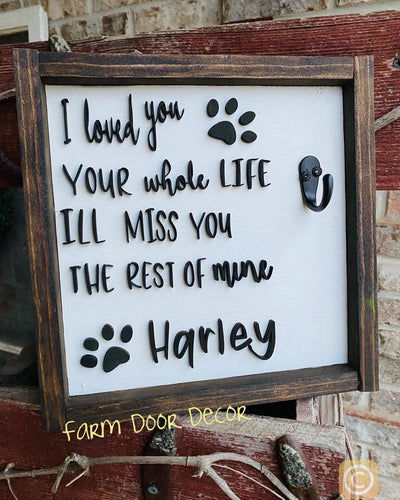 I loved you
YOUR whole LIFE
ILL MISS YOU
THE REST OF mine
Harley
FARM DOOR DECOR
©